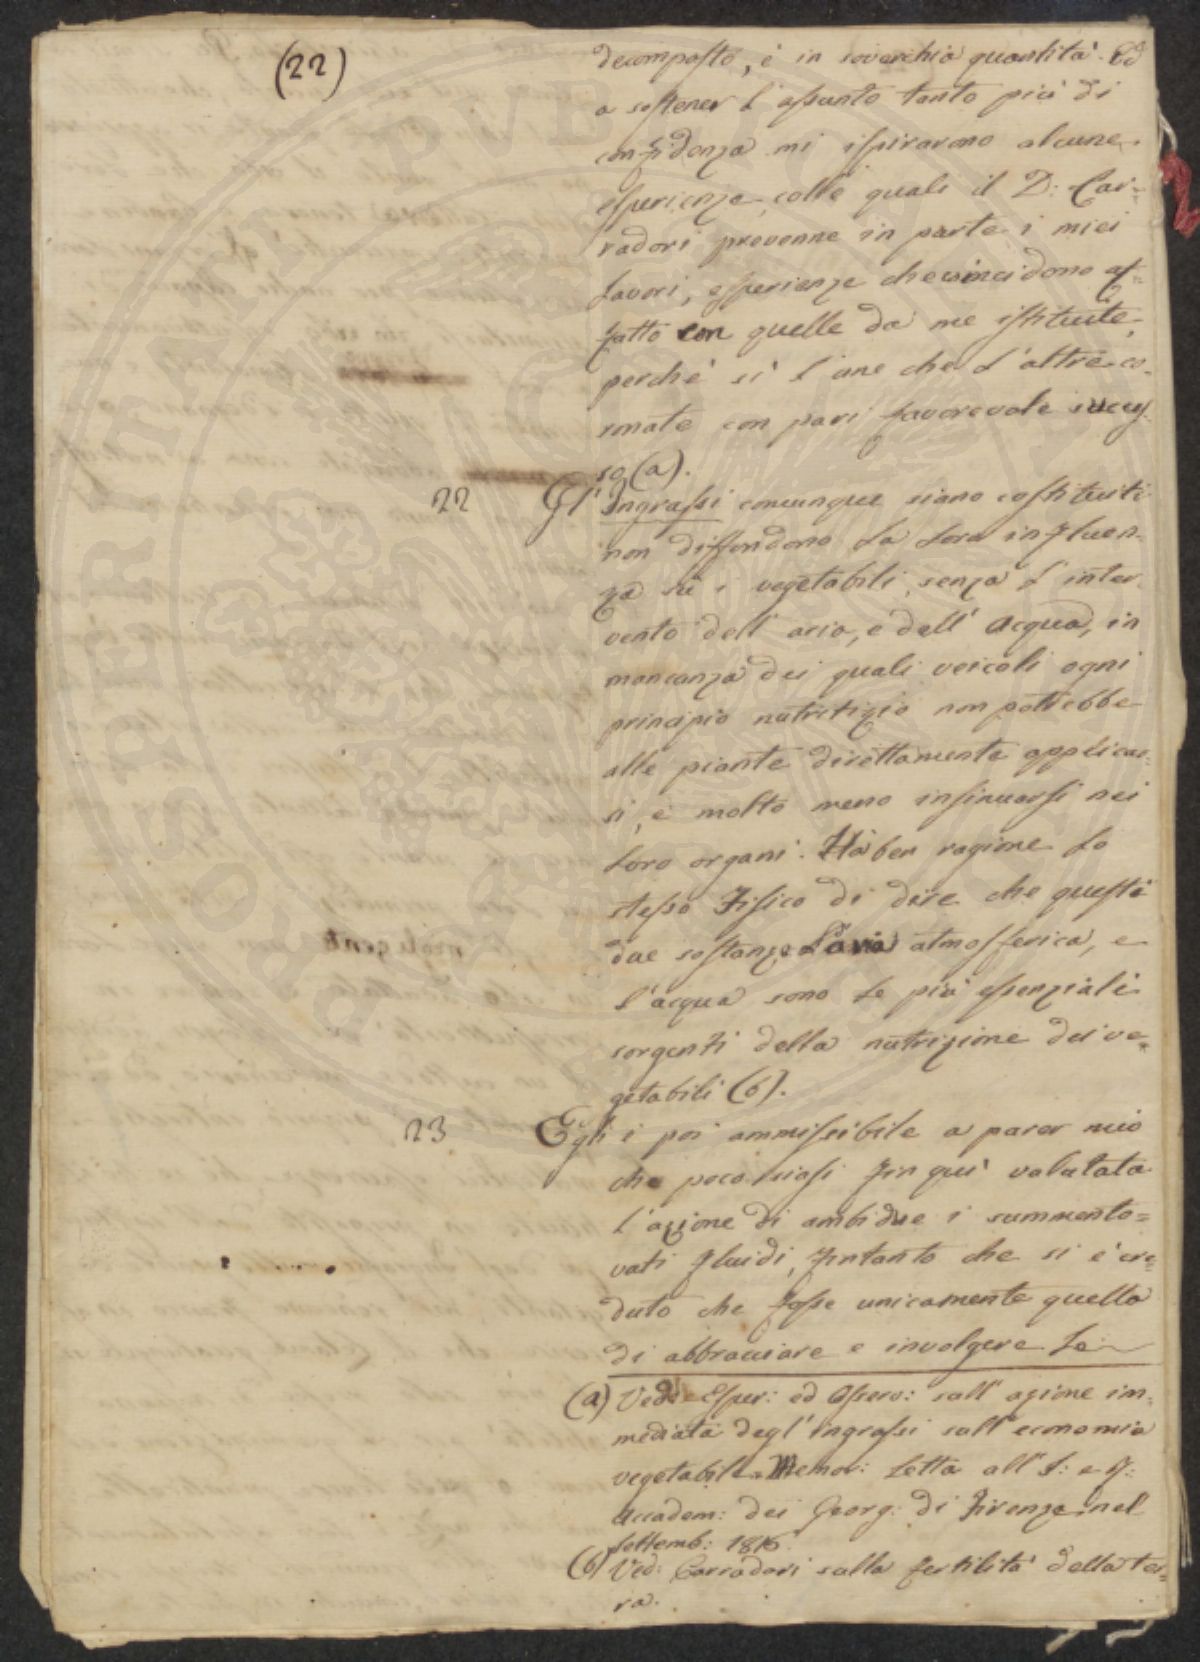 (22)
decomposto, è in soverchia quantità. Ed
a sostener l'assunto tanto più di
confidenza mi ispirarono alcune
esperienze, colle quali il D: Car-
radori prevenne in parte i miei
lavori, esperienze che coincidono af-
fatto con quelle da me istituite,
perchè sì l'une che l'altre co-
ronate con pari favorevole succes-
so (a).
22 Gl'Ingrassi comunque siano costituiti
non diffondono la loro influen-
za su i vegetabili, senza l'inter-
vento dell'aria, e dell'acqua, in
mancanza dei quali veicoli ogni
principio nutritizio non potrebbe
alle piante direttamente applicar-
si, e molto meno insinuarsi nei
loro organi. Ha ben ragione lo
stesso Fisico di dire che queste
due sostanze l'aria atmosferica, e
l'acqua sono le più essenziali
sorgenti della nutrizione dei ve-
getabili (b).
23 Egli è poi ammissibile a parer mio
che poco siasi fin quì valutata
l'azione di ambidue i summento=
vati fluidi, fintanto che si è cre=
duto che fosse unicamente quella
di abbracciare e involgere le
(a) Vedi Esper: ed Osserv: sull'azione im-
mediata degl'ingrassi sull'economia
vegetabile. Memor: Letta all'I: e R:
Accadem: dei Georg: di Firenze nel
Settemb: 1816.
(b) Ved: Carradori sulla fertilità della ter=
ra.